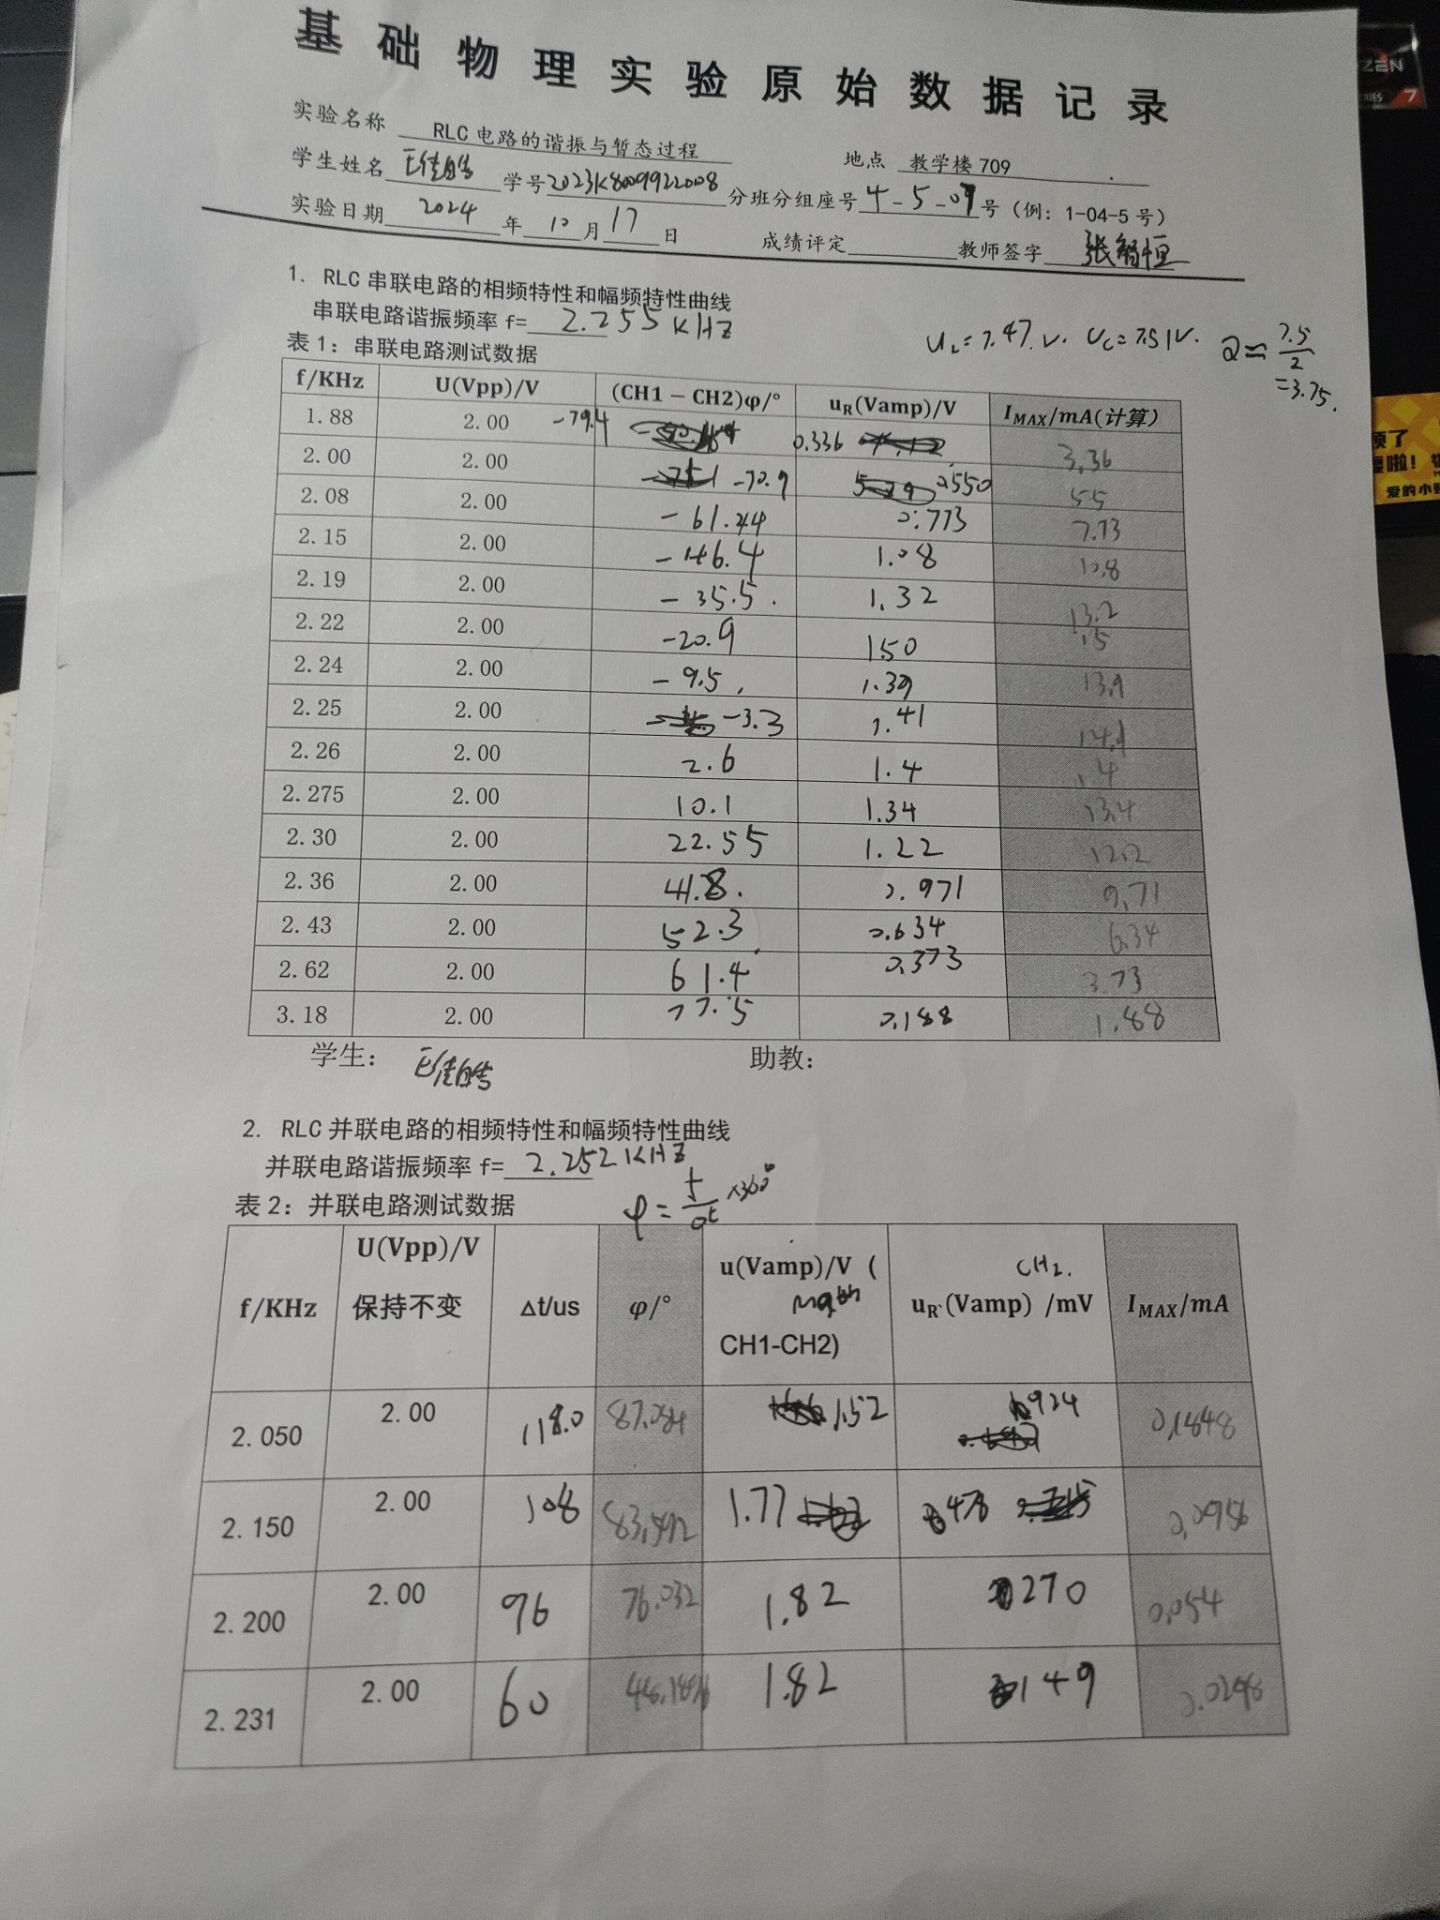 基础物理实验原始数据记录
实验名称 RLC电路的谐振与暂态过程 地点 教学楼709
学生姓名 学号2023K8009922008 分班分组座号4-5-09号（例：1-04-5号）
实验日期 2024 年 10 月 17 日 成绩评定 教师签字 张
1. RLC串联电路的相频特性和幅频特性曲线
串联电路谐振频率f= 2.255KHZ
表1：串联电路测试数据
U_L=7.47V. U_C=7.51V. Q≈7.5/2
=3.75.
f/KHZ U(Vpp)/V (CH1 − CH2)φ/° u_R(Vamp)/V I_MAX/mA(计算)
1.88 2.00 -79.4 0.336 3.36
2.00 2.00 -70.9 0.550 5.5
2.08 2.00 -61.44 0.773 7.73
2.15 2.00 -46.4 1.08 10.8
2.19 2.00 -35.5. 1.32 13.2
2.22 2.00 -20.9 1.50 15
2.24 2.00 -9.5, 1.39 13.9
2.25 2.00 -3.3 1.41 14.1
2.26 2.00 2.6 1.4 14
2.275 2.00 10.1 1.34 13.4
2.30 2.00 22.55 1.22 12.2
2.36 2.00 41.8. 0.971 9.71
2.43 2.00 52.3 0.634 6.34
2.62 2.00 61.4 0.373 3.73
3.18 2.00 77.5 0.188 1.88
学生： 助教：
2. RLC并联电路的相频特性和幅频特性曲线
并联电路谐振频率f= 2.252KHZ
表2：并联电路测试数据
φ = ×360°
f/KHZ U(Vpp)/V 保持不变 Δt/us φ/° u(Vamp)/V (CH1-CH2) CH2. u_R`(Vamp) /mV I_MAX/mA
2.050 2.00 118.0 87.084 1.52 924 0.1848
2.150 2.00 108 83.592 1.77 478 0.0956
2.200 2.00 96 76.032 1.82 270 0.054
2.231 2.00 60 1.82 149 0.0298